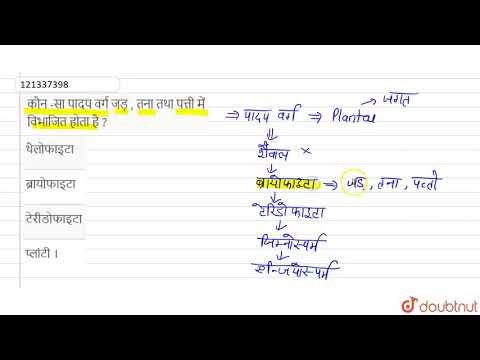 121337398
कौन -सा पादप वर्ग जड़ , तना तथा पत्ती में
विभाजित होता है ?
थैलोफाइटा
ब्रायोफाइटा
टेरीडोफाइटा
प्लांटी ।
जगत
⇒ पादप वर्ग ⇒ Plantae
शैवाल ×
ब्रायोफाइटा ⇒ जड़ , तना , पत्ती
टेरिडोफाइटा
जिम्नोस्पर्म
एन्जियोस्पर्म
doubtnut